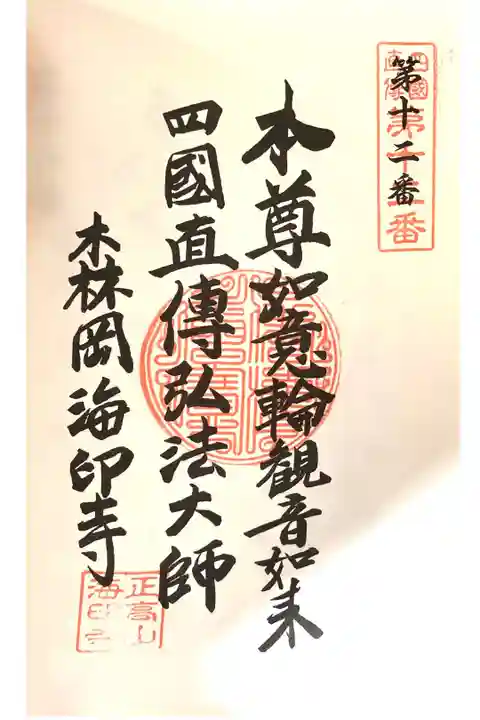 四國
直傳
第十二番
第十二番
本尊如意輪観音如来
四國直傳弘法大師
森岡海印寺
正高山
海印寺